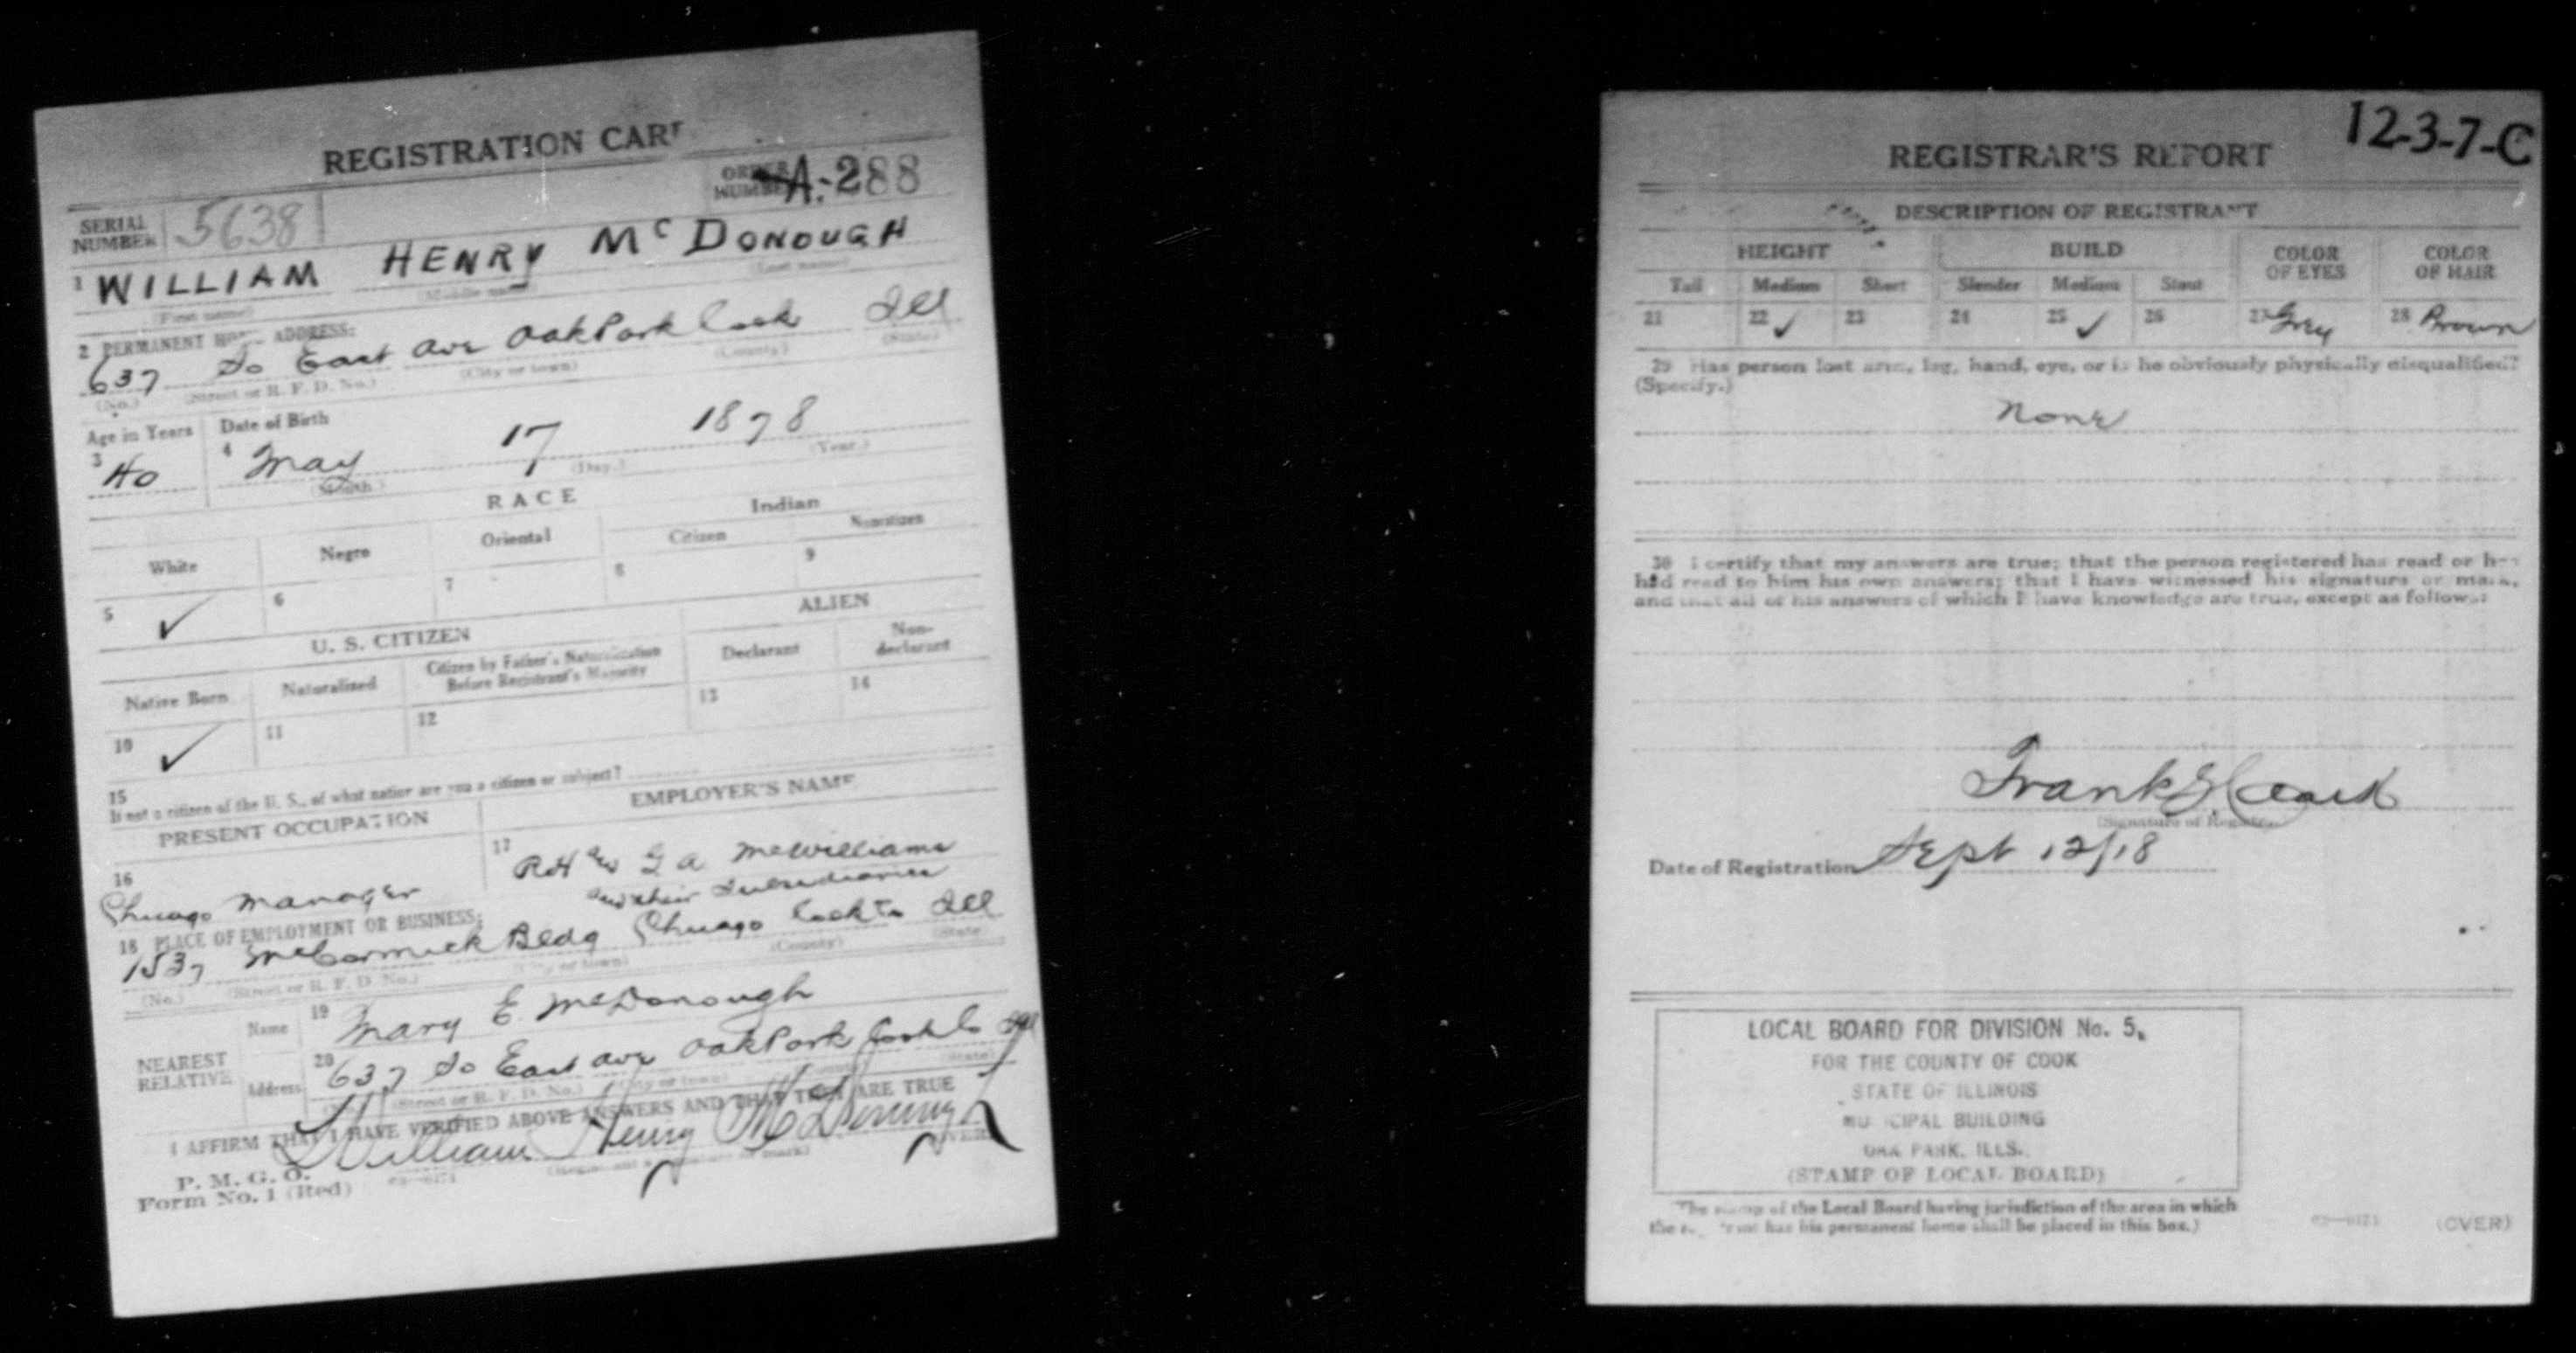 REGISTRATION CARD
SERIAL NUMBER 5638
ORDER NUMBER A-288
1 WILLIAM HENRY McDONOUGH
(First name) (Middle name) (Last name)
2 PERMANENT HOME ADDRESS:
637 So East ave Oak Park Cook Ill
(No.) (Street or R. F. D. No.) (City or town) (County) (State)
Age in Years Date of Birth
3 40 4 May 17 1878
(Month.) (Day.) (Year.)
RACE
White Negro Oriental Indian
Citizen Noncitizen
5 ✓ 6 7 8 9
U. S. CITIZEN ALIEN
Native Born Naturalized Citizen by Father's Naturalization Before Registrant's Majority Declarant Non-declarant
10 ✓ 11 12 13 14
15
If not a citizen of the U. S., of what nation are you a citizen or subject?
PRESENT OCCUPATION EMPLOYER'S NAME
16 Chicago Manager
17 RH and G A McWilliams
and their Subsidiaries
18 PLACE OF EMPLOYMENT OR BUSINESS:
1537 McCormick Bldg Chicago Cook Co Ill
(No.) (Street or R. F. D. No.) (City or town) (County) (State)
NEAREST RELATIVE
Name 19 Mary E. McDonough
Address 20 637 So East ave Oak Park Cook Co Ill
(Street or R. F. D. No.) (City or town) (State)
I AFFIRM THAT I HAVE VERIFIED ABOVE ANSWERS AND THAT THEY ARE TRUE
William Henry McDonough
P. M. G. O.
Form No. 1 (Red) (Registrant's signature or mark) (OVER)
12-3-7-C
REGISTRAR'S REPORT
DESCRIPTION OF REGISTRANT
HEIGHT BUILD COLOR OF EYES COLOR OF HAIR
Tall Medium Short Slender Medium Stout
21 22 ✓ 23 24 25 ✓ 26 27 Grey 28 Brown
29 Has person lost arm, leg, hand, eye, or is he obviously physically disqualified?
(Specify.)
None
30 I certify that my answers are true; that the person registered has read or has
had read to him his own answers; that I have witnessed his signature or mark,
and that all of his answers of which I have knowledge are true, except as follows:
Frank
(Signature of Registrar)
Date of Registration Sept 12/18
LOCAL BOARD FOR DIVISION No. 5,
FOR THE COUNTY OF COOK
STATE OF ILLINOIS
MUNICIPAL BUILDING
OAK PARK, ILLS.
(STAMP OF LOCAL BOARD)
(The stamp of the Local Board having jurisdiction of the area in which
the registrant has his permanent home shall be placed in this box.)
(OVER)